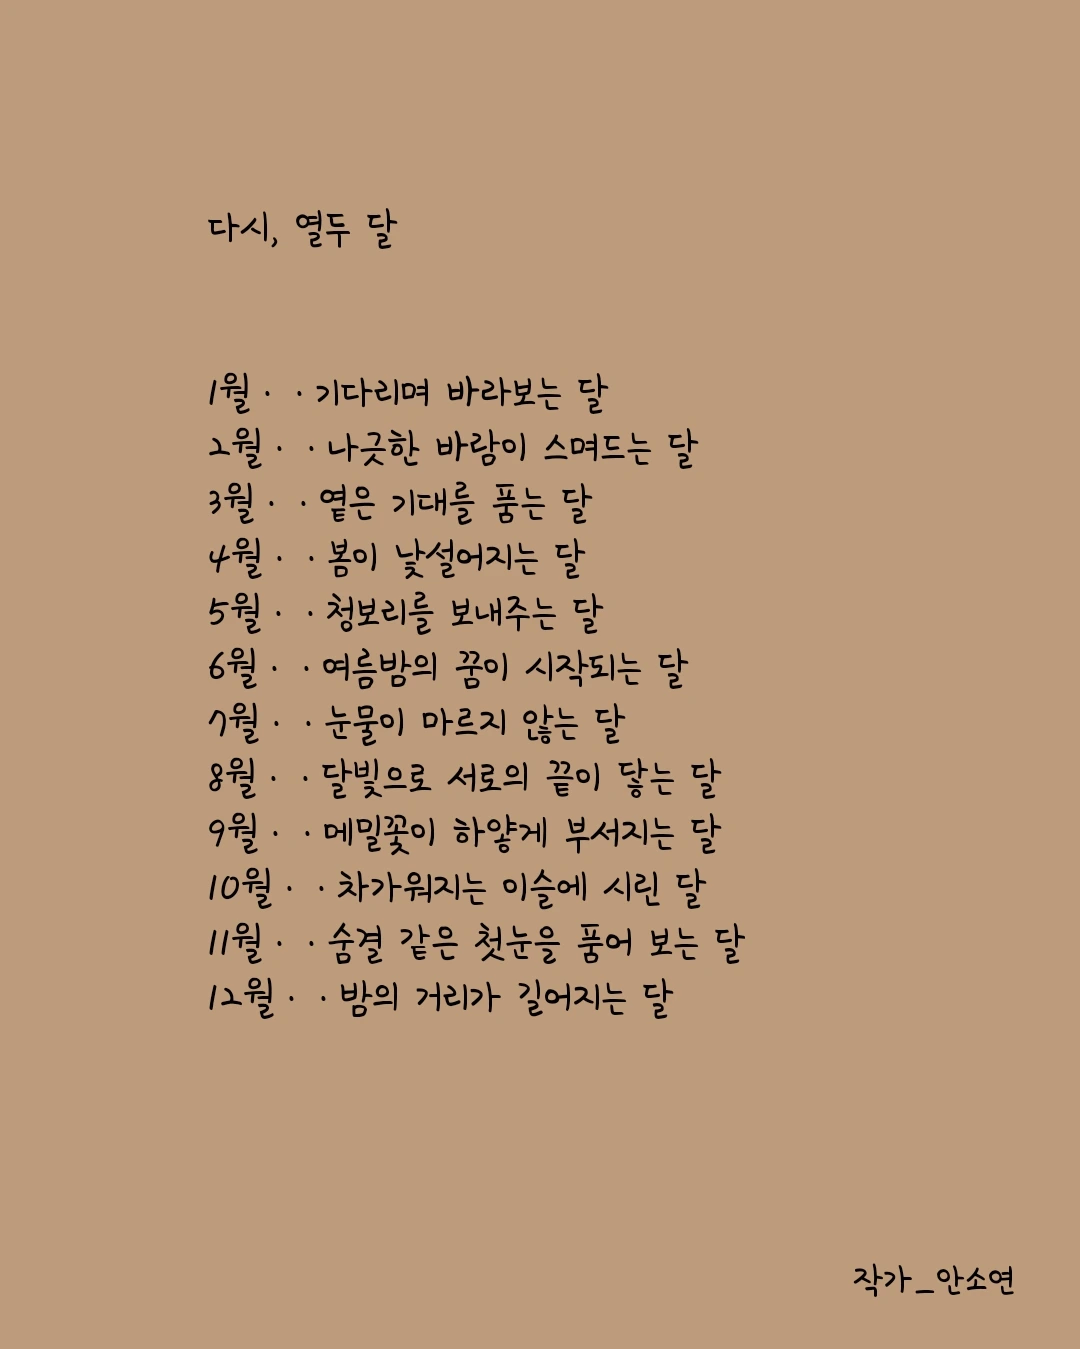 다시, 열두 달
1월 · · 기다리며 바라보는 달
2월 · · 나긋한 바람이 스며드는 달
3월 · · 옅은 기대를 품는 달
4월 · · 봄이 낯설어지는 달
5월 · · 청보리를 보내주는 달
6월 · · 여름밤의 꿈이 시작되는 달
7월 · · 눈물이 마르지 않는 달
8월 · · 달빛으로 서로의 끝이 닿는 달
9월 · · 메밀꽃이 하얗게 부서지는 달
10월 · · 차가워지는 이슬에 시린 달
11월 · · 숨결 같은 첫눈을 품어 보는 달
12월 · · 밤의 거리가 길어지는 달
작가_안소연